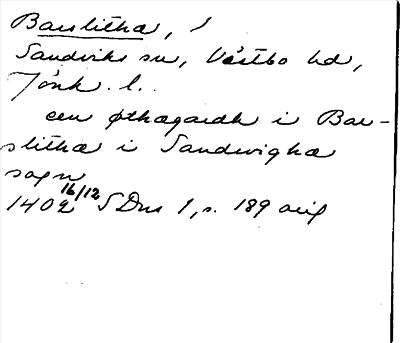 Barlitha, /
Sandviks sn, Västbo hd,
Jönk. l.
een øthægardh i Bar-
slitha i Sandwigha
sogn
1402 16/12 SDns 1, s. 189 orig